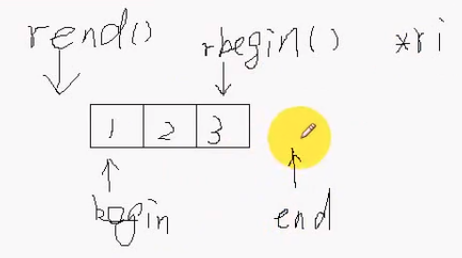 rend() rbegin() *ri
1 2 3
begin end